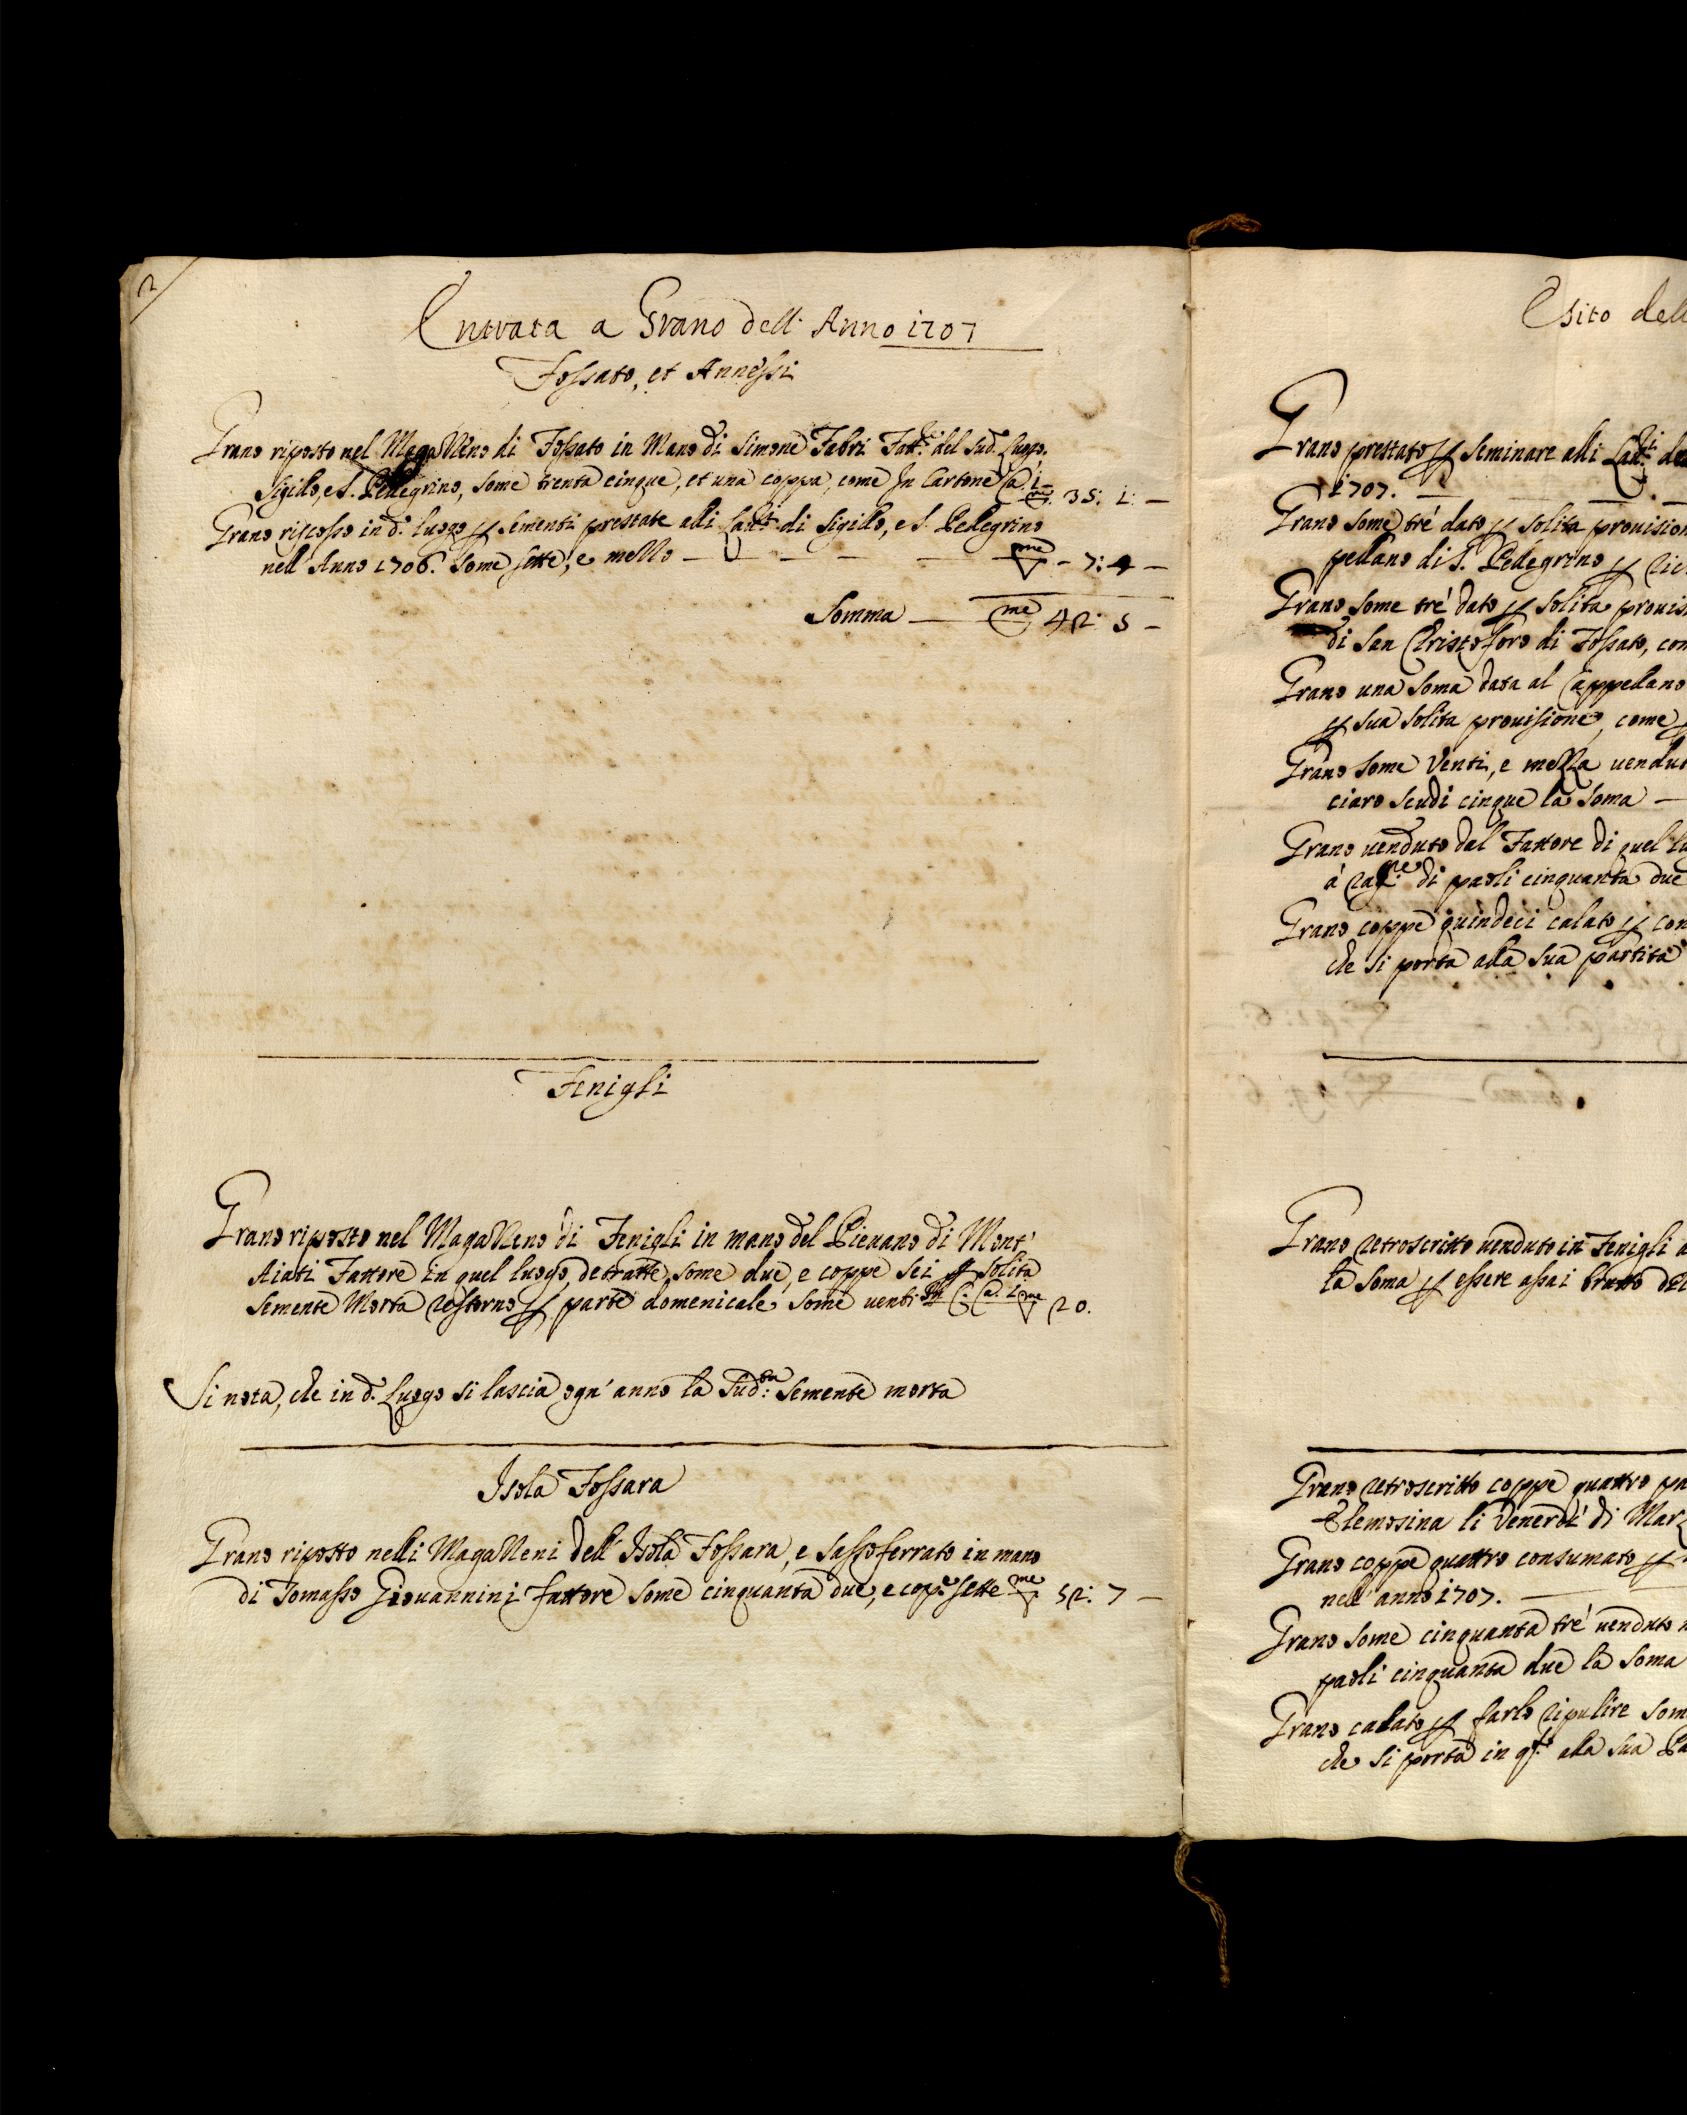 2
Entrata a Grano dell' Anno 1707
Fossato, et Annessi
Grano riposto nel Magazzeno di Fossato in Mano di Simone Fabri Fatt.e del sud.o Luogo,
Sigillo, e S. Pellegrino, some trenta cinque, et una coppa, come In Cartone Ca. 1 — me 35: 1: —
Grano riscosso in d.o luogo p sementi prestate alli Lau.ri di Sigillo, e S. Pellegrino
nell' Anno 1706. Some sette, e mezzo — — — — me - 7: 4 —
Somma — me 42: 5 —
Fenigli
Grano riposto nel Magazzeno di Fenigli in mano del Pievano di Mont'
Aiati Fattore in quel luogo, detratte some due, e coppe sei p solita
Semente Morta restorno p parte domenicale some venti In C. Ca. 2 me 20.
Si nota, che in d.o Luogo si lascia ogn' anno la sud.ta semente morta
Isola Fossara
Grano riposto nelli Magazzeni dell' Isola Fossara, e Sassoferrato in mano
di Tomasso Giovannini fattore some cinquanta due, e copp.e sette me 52: 7 —
Esito dell
Grano prestato p seminare alli Lau.ri de
1707. —
Grano some tré dato p solita provision
pellano di S. Pellegrino p ric
Grano some tré dato p solita provis
di San Cristoforo di Fossato, com
Grano una soma data al Cappellano
p sua solita provisione, come p
Grano some Venti, e mezza vendut
ciaro scudi cinque la soma —
Grano venduto dal Fattore di quel lu
á rag.ne di paoli cinquanta due
Grano coppe quindeci calato p con
che si porta alla sua partita
Grano retroscritto venduto in Fenigli a
la soma p essere assai brutto del
Grano retroscritto coppe quattro pa
Elemosina li Venerdí di Marz
Grano coppe quattro consumato p
nell' anno 1707. —
Grano some cinquanta tré venduto
paoli cinquanta due la soma
Grano calato p farlo ripulire som
che si porta in q.to alla sua Pa